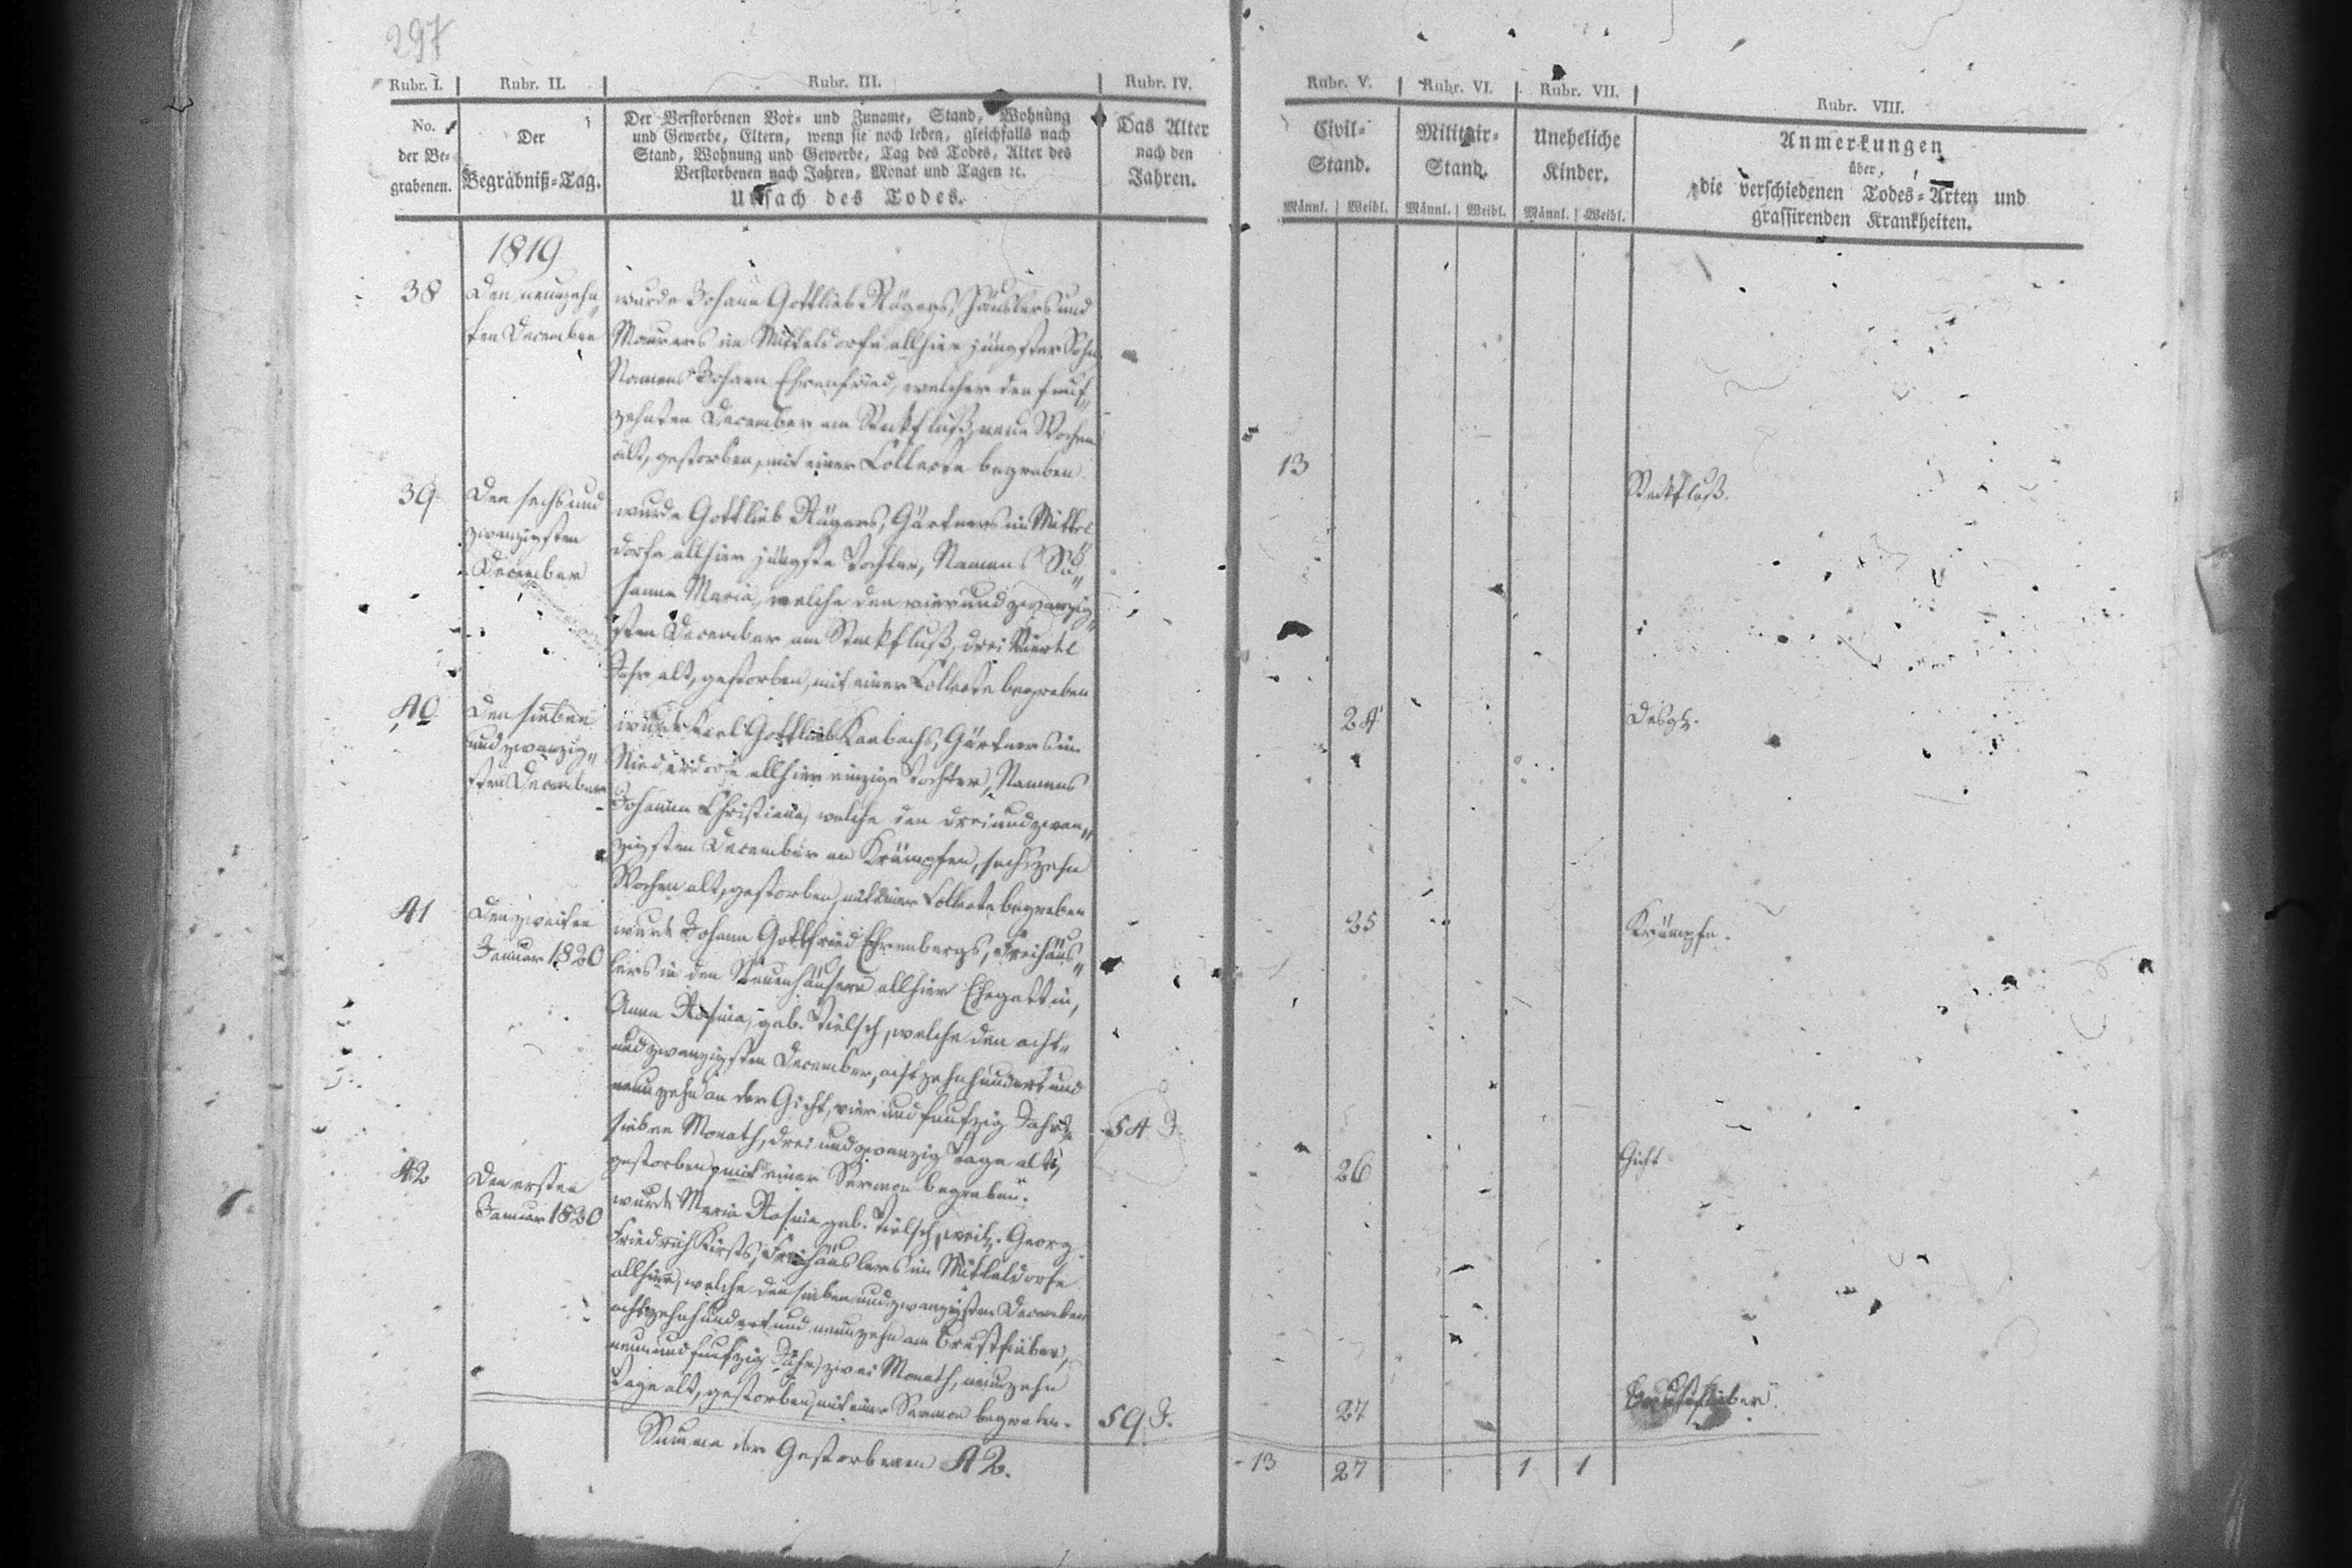 297
Rubr. I. Rubr. II. Rubr. III. Rubr. IV. Rubr. V. Rubr. VI. Rubr. VII. Rubr. VIII.
No.
der Be-
grabenen.
Der
Begräbniß-Tag.
Der Verstorbenen Vor- und Zuname, Stand, Wohnung
und Gewerbe, Eltern, wenn sie noch leben, gleichfalls nach
Stand, Wohnung und Gewerbe, Tag des Todes, Alter des
Verstorbenen nach Jahren, Monat und Tagen ꝛc.
Ursach des Todes.
Das Alter
nach den
Jahren.
Civil-
Stand.
Männl. Weibl.
Militair-
Stand.
Männl. Weibl.
Uneheliche
Kinder.
Männl. Weibl.
Anmerkungen
über
die verschiedenen Todes-Arten und
grassirenden Krankheiten.
1819
38
Den neunzehn„
ten December
wurde Johann Gottlieb Rügers, Häuslers und
Maurers im Mitteldorfe allhier jüngster Sohn
Namens Johann Ehrenfried, welcher den funf„
zehnten December am Steckfluß, neun Wochen
alt, gestorben, mit einer Collecte begraben
13
Steckfluß.
39
Den sechs und
zwanzigsten
December
wurde Gottlieb Rügers, Gärtners im Mittel
dorfe allhier jüngste Tochter, Namens Su„
sanna Maria, welche den vierundzwanzig„
sten December am Steckfluß, drei Viertel
Jahr alt, gestorben, mit einer Collecte begraben
24
Desgl.
40
Den sieben
und zwanzig„
sten December
wurde Karl Gottlieb Kaebachs, Gärtners im
Niederdorfe allhier einzige Tochter, Namens
Johanna Christiana, welche den dreiundzwan„
zigsten December an Krämpfen, sechszehn
Wochen alt, gestorben, mit einer Collecte begraben
25
Krämpfe.
41
Den zweiten
Januar 1820
wurde Johann Gottfried Ehrenbergs, Freihäus„
lers in den Neuenhäusern allhier Ehegattin,
Anna Rosina, geb. Tielsch, welche den acht„
undzwanzigsten December, achtzehnhundert und
neunzehn an der Gicht, vier und funfzig Jahre
sieben Monath, drei und zwanzig Tage alt,
gestorben, mit einer Sermon begraben.
54 J.
26
Gicht
42
Den ersten
Januar 1820
wurde Maria Rosina geb. Tielsch, weil. Georg
Friedrich Kirsts, Freihäuslers im Mitteldorfe
allhier, welche den sieben und zwanzigsten December
achtzehnhundert und neunzehn am Brustfieber,
neun und funfzig Jahr, zwei Monath, neunzehn
Tage alt, gestorben, mit einer Sermon begraben.
59 J.
27
Brustfieber.
Summa der Gestorbenen 42.
13 27 1 1